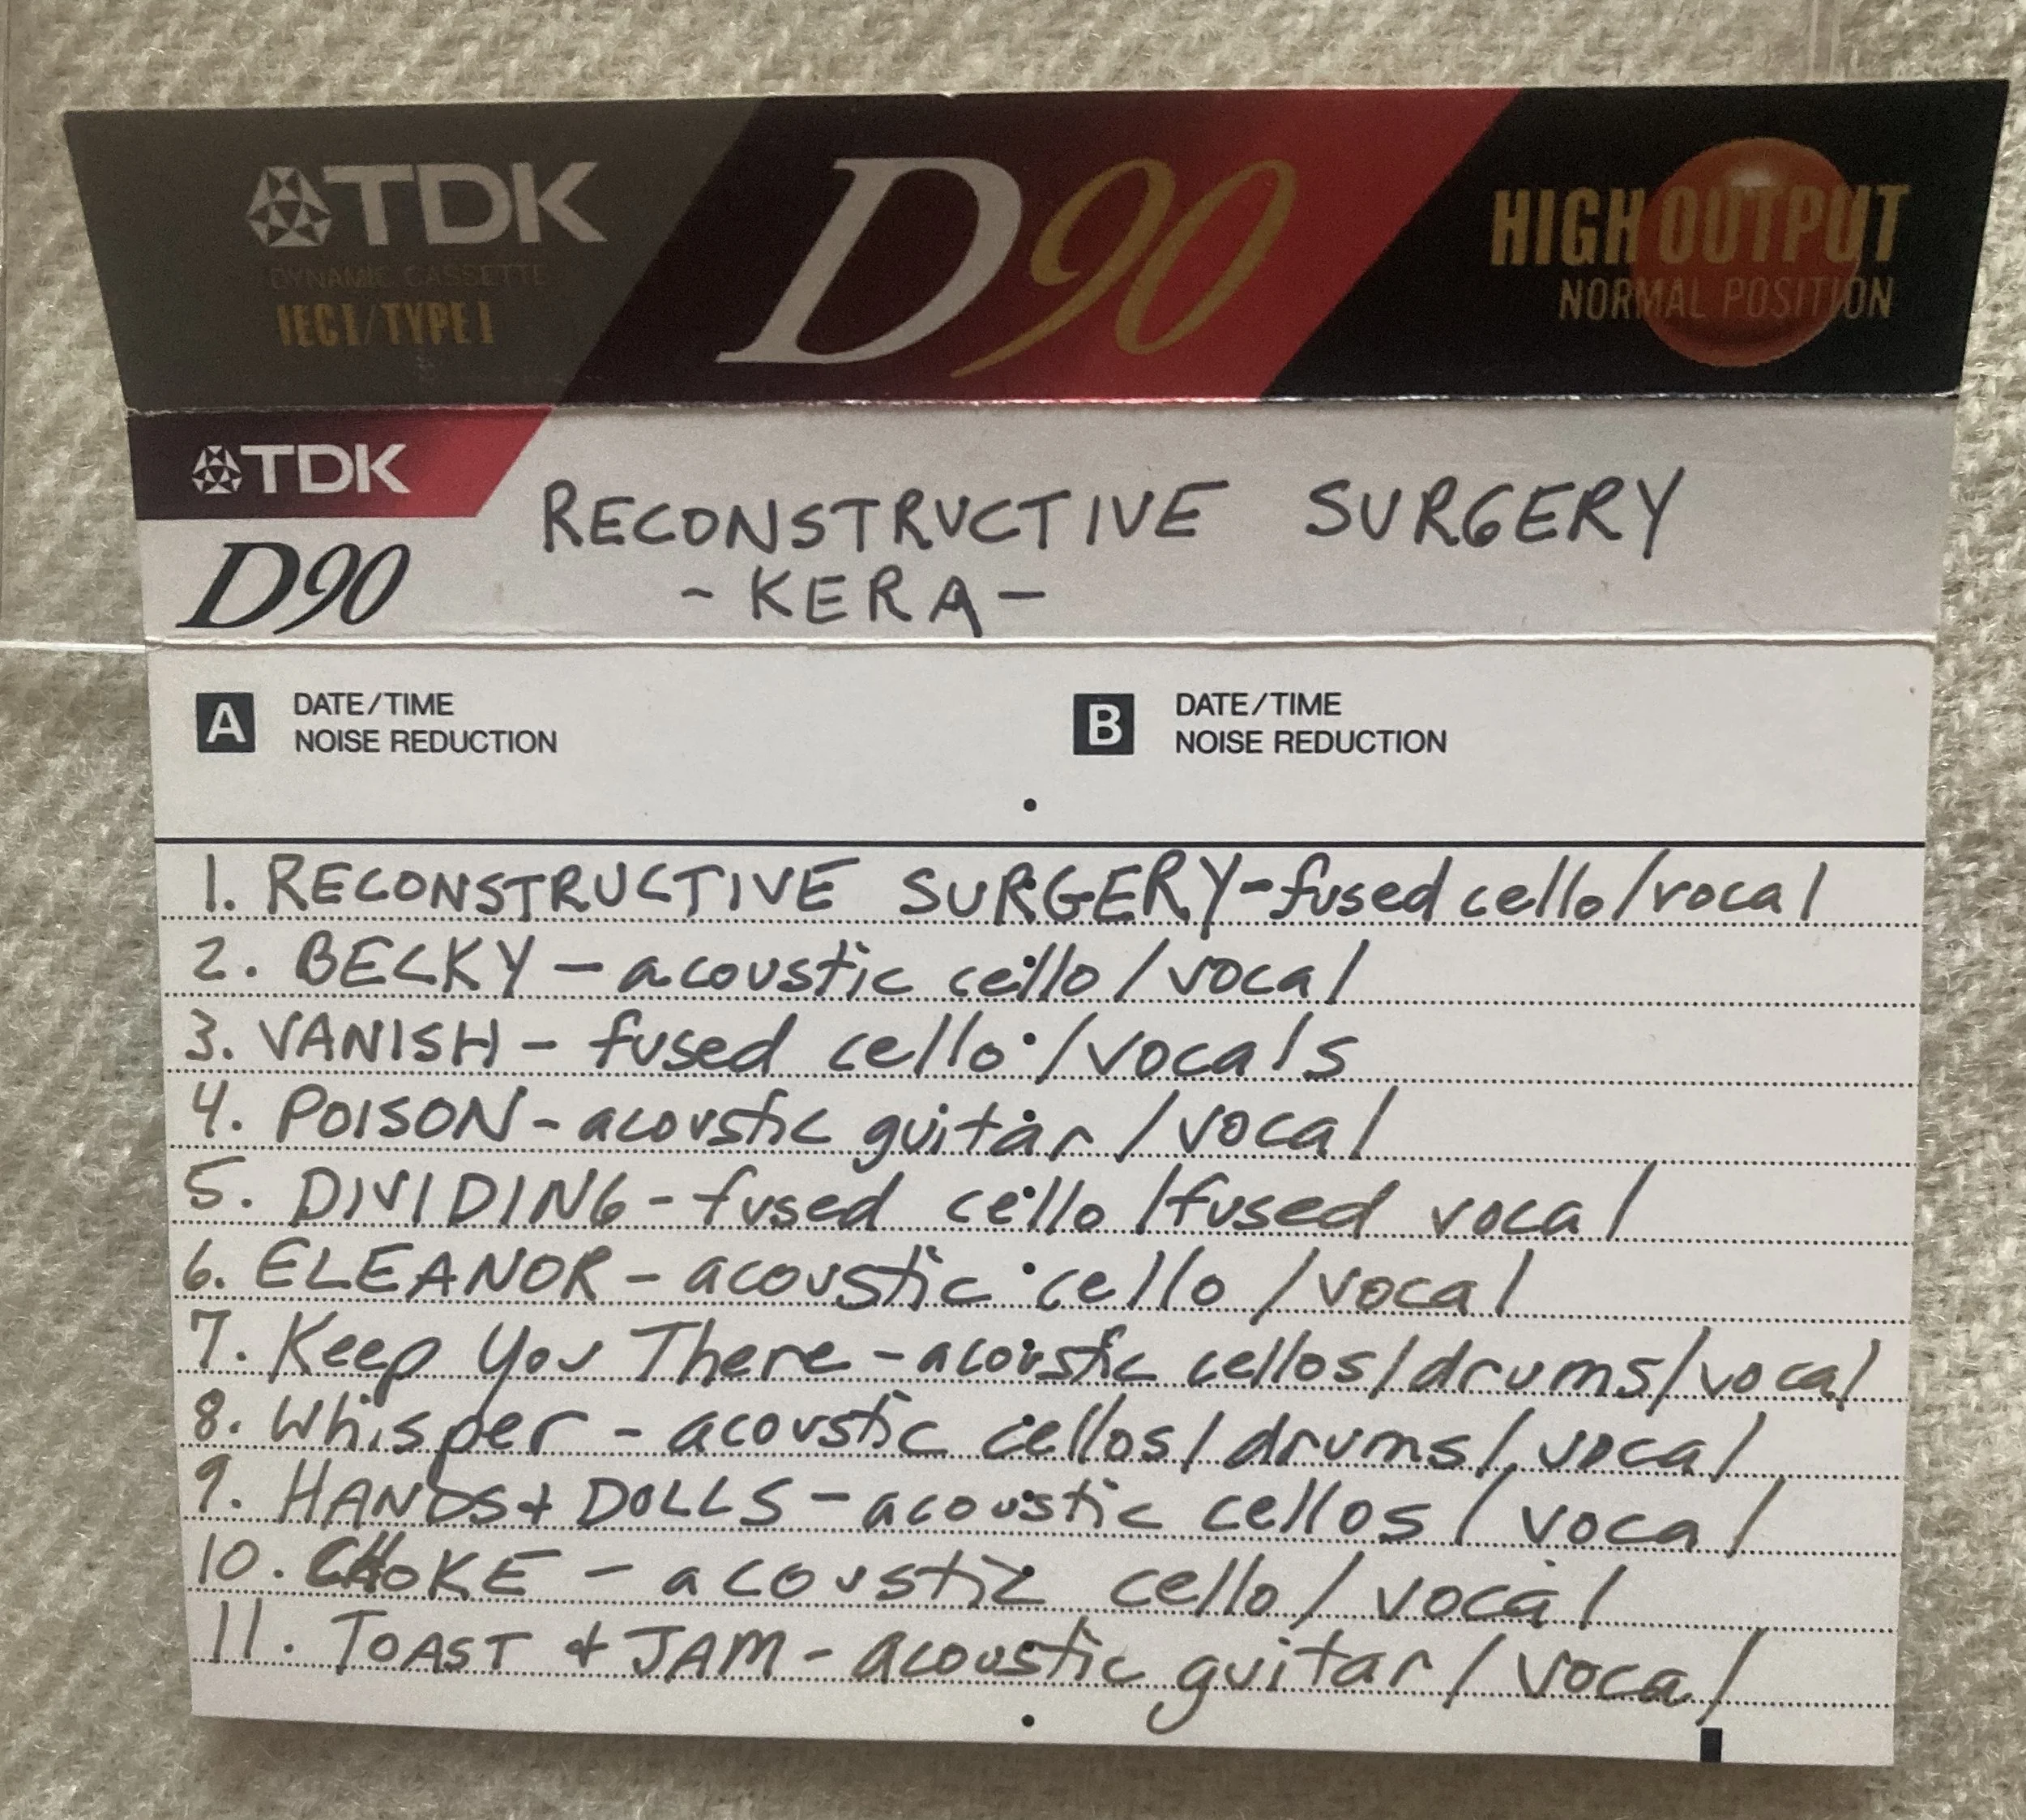 TDK D90 HIGH OUTPUT
DYNAMIC CASSETTE NORMAL POSITION
IEC I/TYPE I
TDK
D90
RECONSTRUCTIVE SURGERY
- KERA -
A DATE/TIME
NOISE REDUCTION
B DATE/TIME
NOISE REDUCTION
1. RECONSTRUCTIVE SURGERY-fused cello/vocal
2. BECKY - acoustic cello/vocal
3. VANISH - fused cello/vocals
4. POISON - acoustic guitar/vocal
5. DIVIDING - fused cello/fused vocal
6. ELEANOR - acoustic cello/vocal
7. Keep You There - acoustic cellos/drums/vocal
8. Whisper - acoustic cellos/drums/vocal
9. HANDS + DOLLS - acoustic cellos/vocal
10. CHOKE - acoustic cello/vocal
11. TOAST + JAM - acoustic guitar/vocal